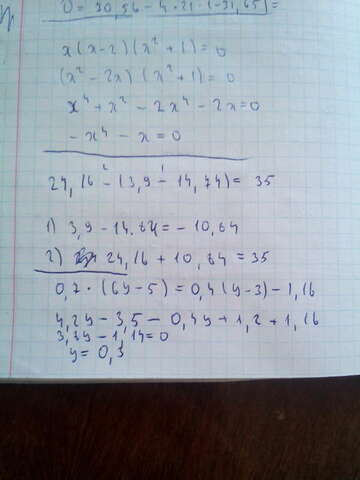 D = 30,56 - 4 · 21 · (-31,65) =
x(x-2)(x²+1)=0
(x²-2x)(x²+1)=0
x⁴+x²-2x⁴-2x=0
-x⁴-x=0
24,16 ² - (3,9 ¹ - 14,74) = 35
1) 3,9-14,64=-10,64
2) 24,16+10,84=35
0,7·(6y-5)=0,4(y-3)-1,16
4,2y-3,5-0,4y+1,2+1,16
3,8y-1,14=0
y=0,3